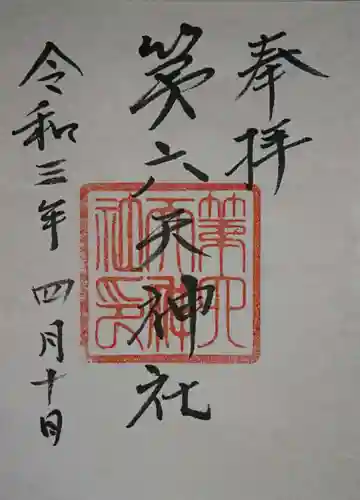 奉拝
第六天神社
令和三年 四月十日
第六
天神
社印